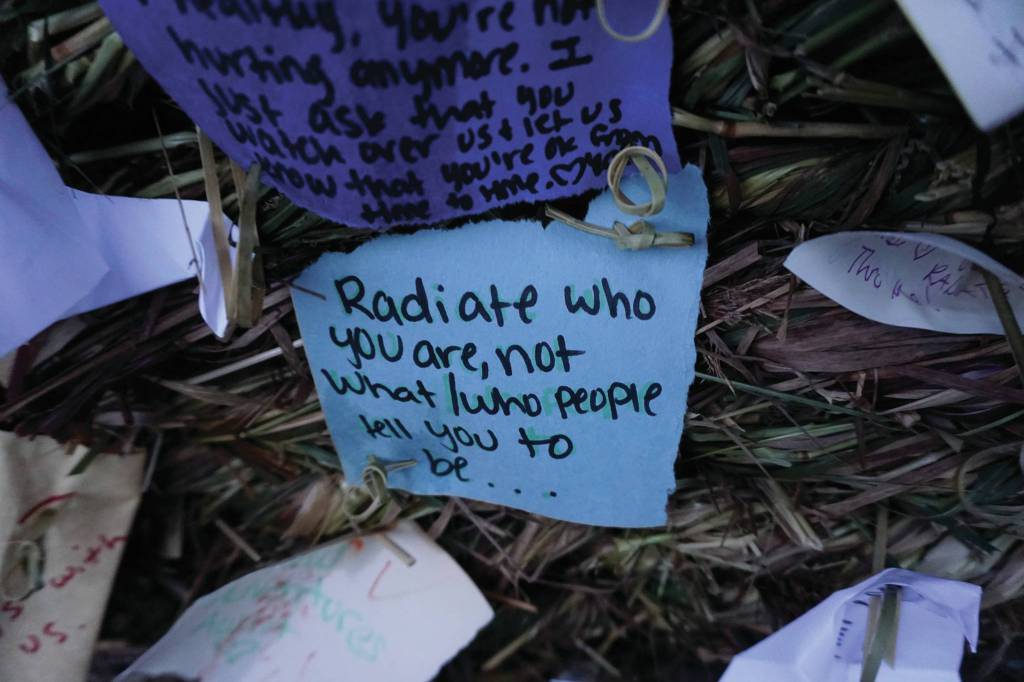 healthy, you're not
hurting anymore. I
just ask that you
watch over us & let us
know that you're ok from
time to time. ♡
Radiate who
you are, not
what/who people
tell you to
be....
with
us.